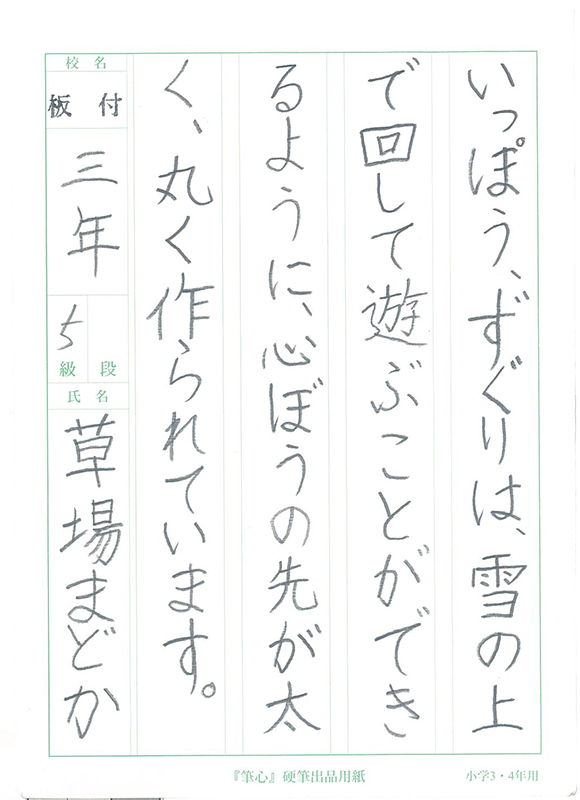 いっぽう、ずぐりは、雪の上
で回して遊ぶことができ
るように、心ぼうの先が太
く、丸く作られています。
校名
板付
三年
5
級 段
氏名
草場まどか
『筆心』硬筆出品用紙
小学3・4年用